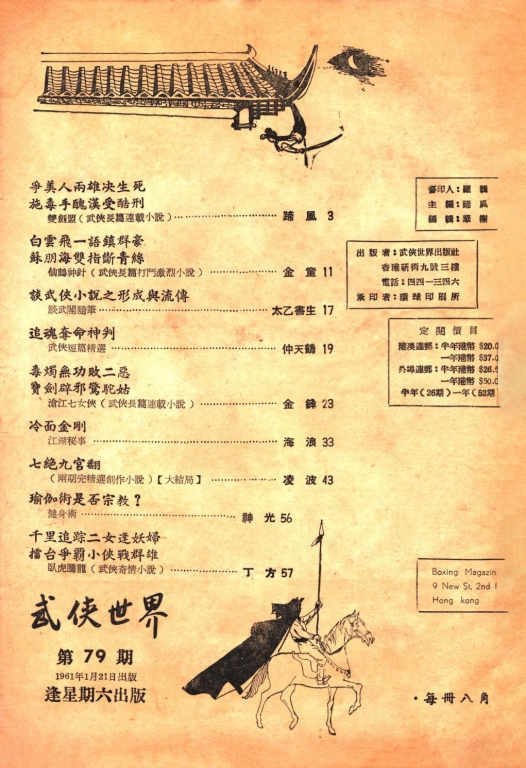 爭美人兩雄決生死
施毒手醜漢受酷刑
雙劍盟（武俠長篇連載小說） 蹄風 3
白雲飛一語鎮群豪
蘇朋海雙指斷青絲
仙鶴神針（武俠長篇打鬥激烈小說） 金童 11
談武俠小說之形成與流傳
談武閣隨筆 太乙書生 17
追魂奪命神判
武俠短篇精選 仲天鶴 19
毒燭無功敗二惡
寶劍辟邪驚駝姑
滄江七女俠（武俠長篇連載小說） 金鋒 23
冷面金剛
江湖秘事 海浪 33
七絕九宮翻
（兩期完精選創作小說）【大結局】 凌波 43
瑜伽術是否宗教？
健身術 神光 56
千里追踪二女逢妖婦
擂台爭霸小俠戰群雄
臥虎騰龍（武俠奇情小說） 丁方 57
武俠世界
第79期
1961年1月21日出版
逢星期六出版
督印人：羅
主編：蹄風
編輯：
出版者：武俠世界出版社
香港新街九號三樓
電話：四四一三四六
承印者：環球印刷所
定閱價目
港澳連郵：半年港幣 $20.0
一年港幣 $37.0
外埠連郵：半年港幣 $26.
一年港幣 $50.0
半年（26期）一年（52期）
Boxing Magazin
9 New St, 2nd
Hong kong
·每冊八角